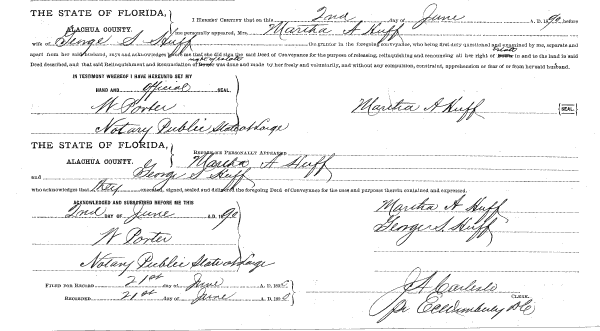 THE STATE OF FLORIDA,
ALACHUA COUNTY.
I HEREBY CERTIFY that on this 2nd day of June A. D. 1890 before
me personally appeared, Mrs. Martha A Huff
wife of George S Huff the Grantor in the foregoing conveyance, who being first duly questioned and examined by me, separate and
apart from her said husband, says and acknowledges to me that she did sign the said Deed of Conveyance for the purpose of releasing, relinquishing and renouncing all live right of estate in and to the land in said
Deed described, and that said Relinquishment and Renunciation of right of estate was done and made by her freely and voluntarily, and without any compulsion, constraint, apprehension or fear of or from her said husband.
IN TESTIMONY WHEREOF I HAVE HEREUNTO SET MY
HAND AND official SEAL.
W Porter
Martha A Huff SEAL
Notary Public State at Large
THE STATE OF FLORIDA,
ALACHUA COUNTY.
BEFORE ME PERSONALLY APPEARED
Martha A Huff
and George S Huff
who acknowledges that they executed, signed, sealed and delivered the foregoing Deed of Conveyance for the uses and purposes therein contained and expressed.
ACKNOWLEDGED AND SUBSCRIBED BEFORE ME THIS
2nd DAY OF June A. D. 1890
W Porter
Notary Public State at Large
Martha A Huff
George S Huff
FILED FOR RECORD 21st day of June A. D. 1890
RECORDED 21st day of June A. D. 1890
J A Carlisle
CLERK.
pr E C Wimberly D C